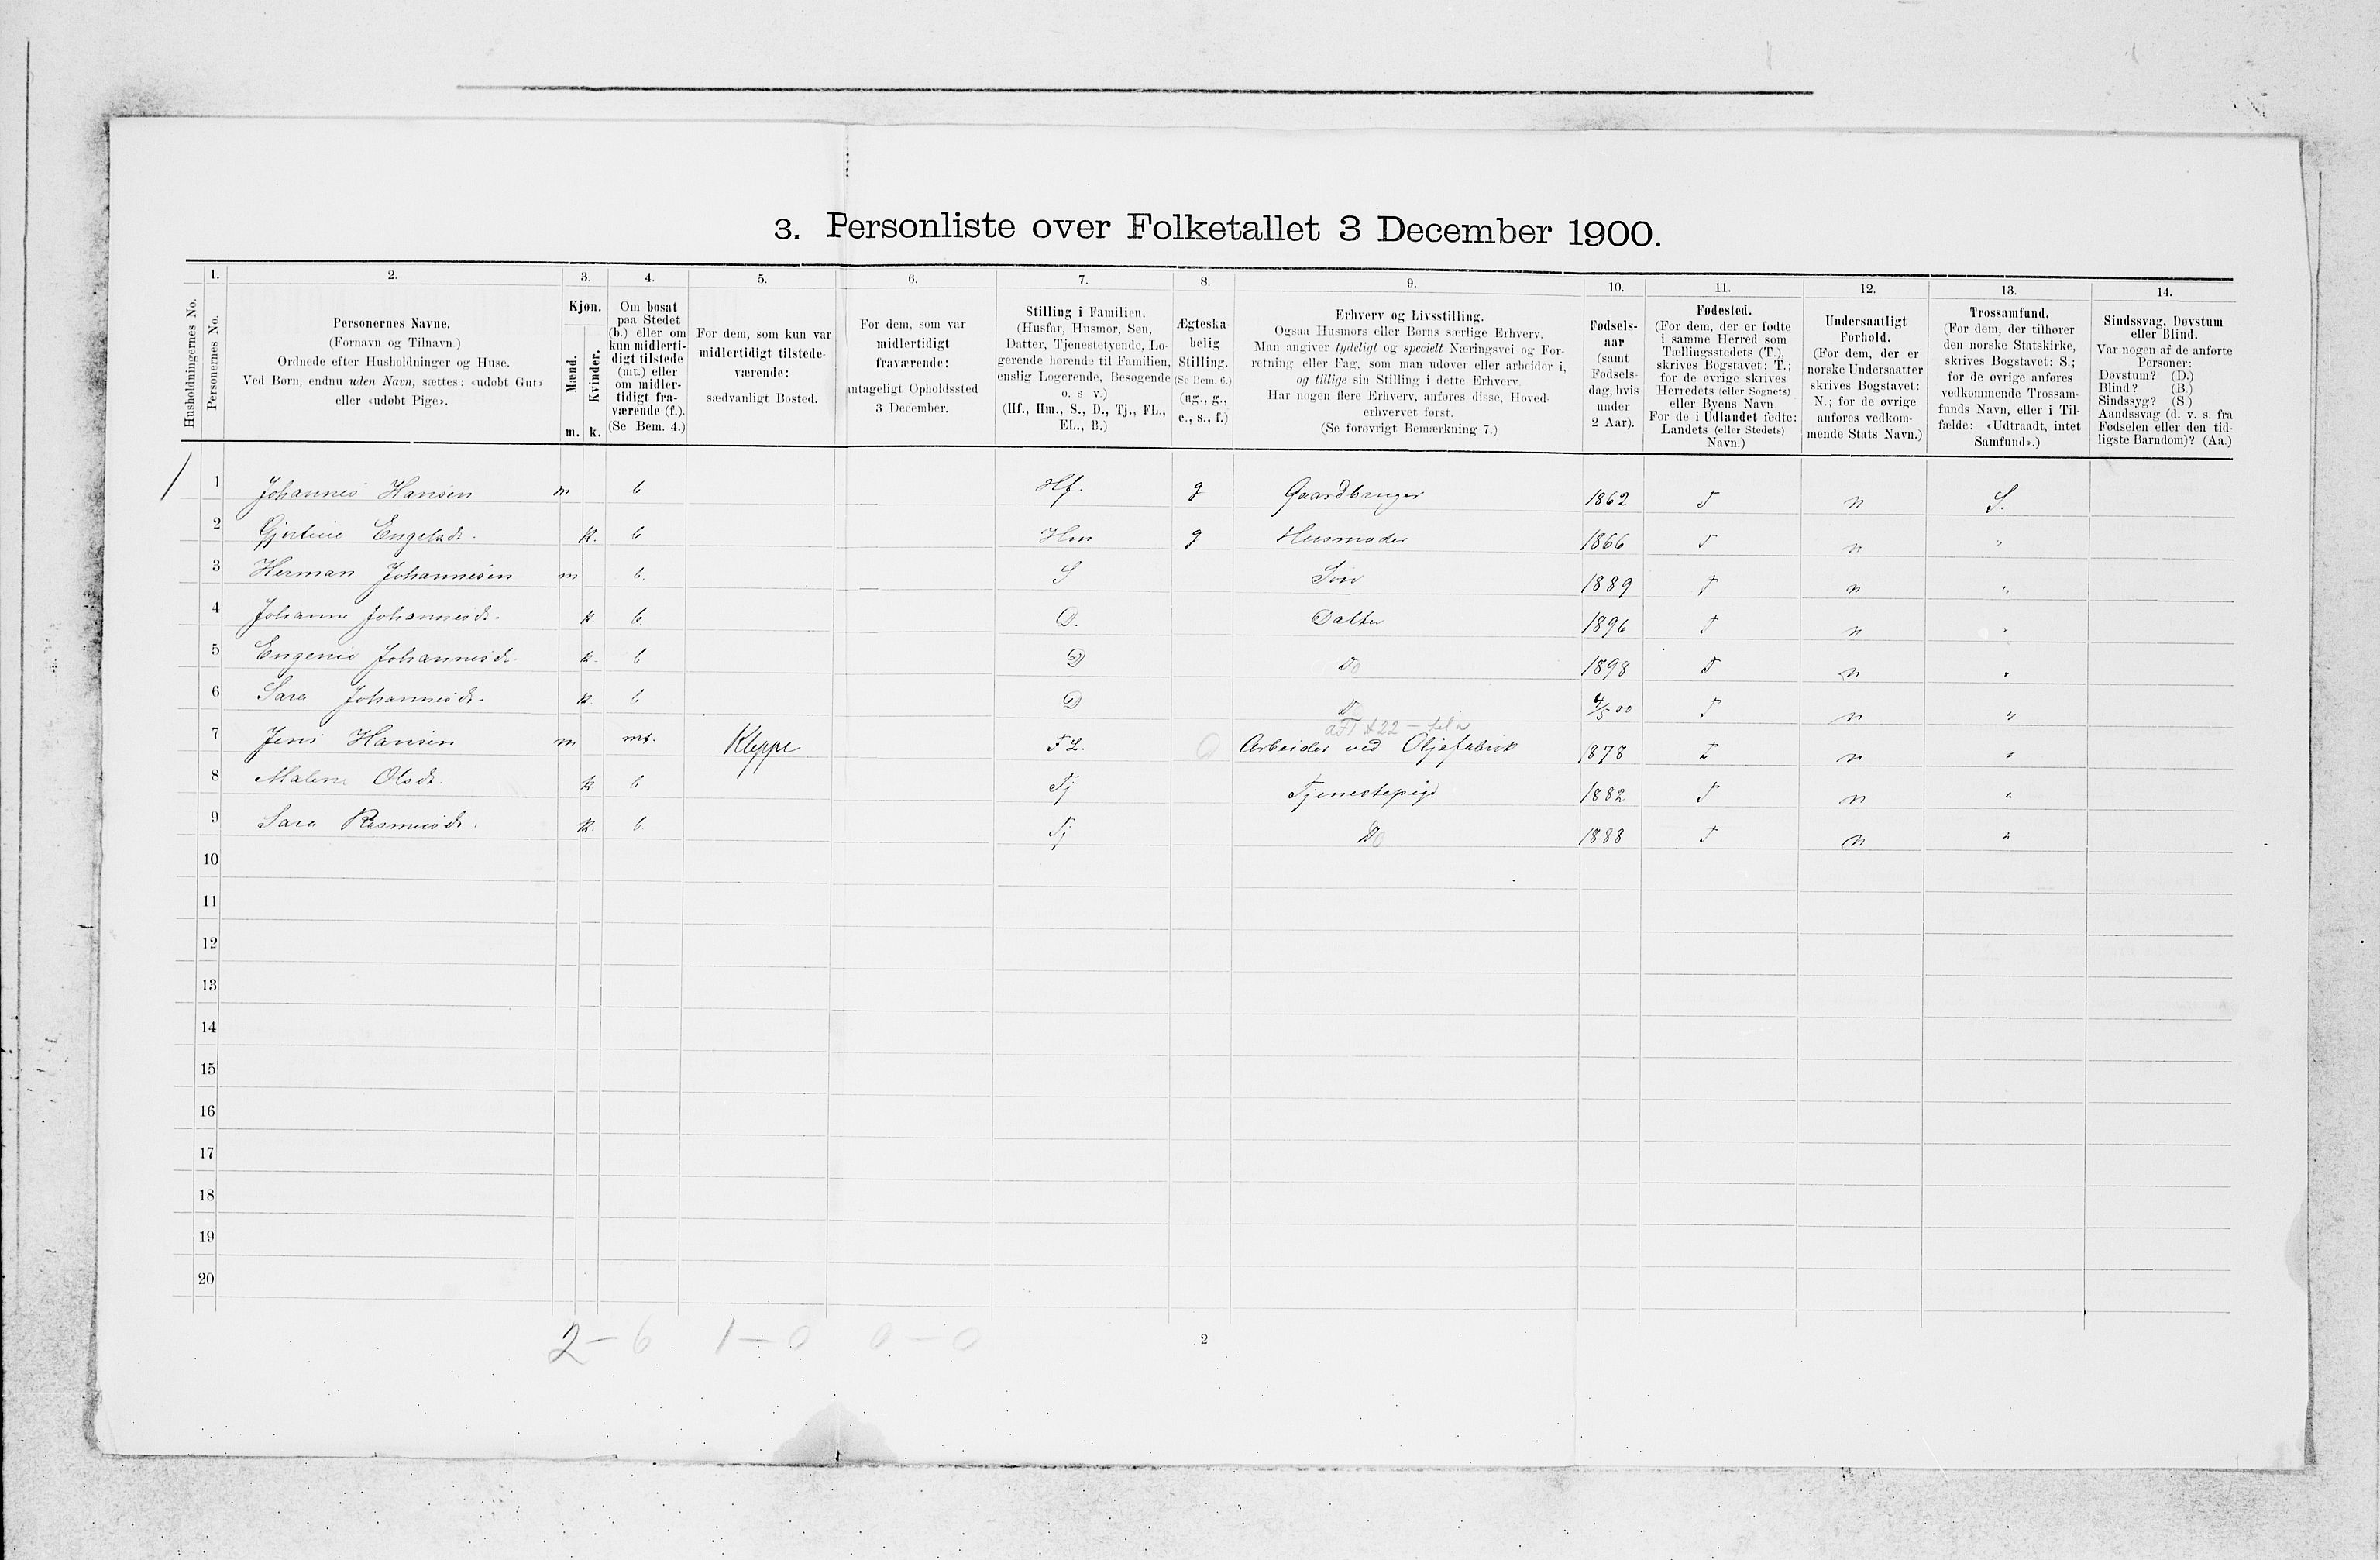 3. Personliste over Folketallet 3 December 1900.
1. 2. 3. 4. 5. 6. 7. 8. 9. 10. 11. 12. 13. 14.
Husholdningernes No.
Personernes No.
Personernes Navne.
(Fornavn og Tilnavn)
Ordnede efter Husholdninger og Huse.
Ved Børn, endnu uden Navn, sættes: «udøbt Gut»
eller «udøbt Pige».
Kjøn.
Mænd.
Kvinder.
m. k.
Om bosat
paa Stedet
(b.) eller om
kun midlerti-
digt tilstede
(mt.) eller
om midler-
tidigt fra-
værende (f.).
(Se Bem. 4.)
For dem, som kun var
midlertidigt tilstede-
værende:
sædvanligt Bosted.
For dem, som var
midlertidigt
fraværende:
antageligt Opholdssted
3 December.
Stilling i Familien.
(Husfar, Husmor, Søn,
Datter, Tjenestetyende, Lo-
gerende hørende til Familien,
enslig Logerende, Besøgende
o. s v.)
(Hf., Hm., S., D., Tj., FL.,
EL., B.)
Ægteska-
belig
Stilling.
(Se Bem. 6.)
(ug., g.,
e., s., f.)
Erhverv og Livsstilling.
Ogsaa Husmors eller Børns særlige Erhverv.
Man angiver tydeligt og specielt Næringsvei og For-
retning eller Fag, som man udøver eller arbeider i,
og tillige sin Stilling i dette Erhverv
Har nogen flere Erhverv, anføres disse, Hoved-
erhvervet først.
(Se forøvrigt Bemærkning 7.)
Fødsels-
aar
(samt
Fødsels-
dag, hvis
under
2 Aar).
Fødested.
(For dem, der er fødte
i samme Herred som
Tællingsstedets (T.),
skrives Bogstavet: T.;
for de øvrige skrives
Herredets (eller Sognets)
eller Byens Navn
For de i Udlandet fødte:
Landets (eller Stedets)
Navn.)
Undersaatligt
Forhold.
(For dem, der er
norske Undersaatter
skrives Bogstavet:
N.; for de øvrige
anføres vedkom-
mende Stats Navn.)
Trossamfund.
(For dem, der tilhører
den norske Statskirke,
skrives Bogstavet: S.;
for de øvrige anføres
vedkommende Trossam-
funds Navn, eller i Til-
fælde: «Udtraadt, intet
Samfund».)
Sindssvag, Døvstum
eller Blind.
Var nogen af de anførte
Personer:
Døvstum? (D.)
Blind? (B.)
Sindssyg? (S.)
Aandssvag (d. v. s. fra
Fødselen eller den tid-
ligste Barndom)? (Aa.)
1 Johannes Hansen m b Hf. g Gaardbruger 1862 T n S.
2 Gjertine Engelsdt. k. b Hm g Husmoder 1866 T n "
3 Herman Johannesen m b. S Søn 1889 T n "
4 Johanne Johannesdt. k. b. D. Datter 1896 T n "
5 Engenie Johannesdt. k. b D Do 1898 T n "
6 Sara Johannesdt. k. b D Do 4/5 00 T n "
7 Jens Hansen m mt. Kleppe F L. Arbeider ved Oljefabrik 1878 T n "
8 Malene Olsdt. k b Tj Tjenestepige 1882 T n "
9 Sara Rasmusdt. k. b. Tj Do 1888 T n "
10
11
12
13
14
15
16
17
18
19
20
2 – 6 1 – 0 0 – 0
2